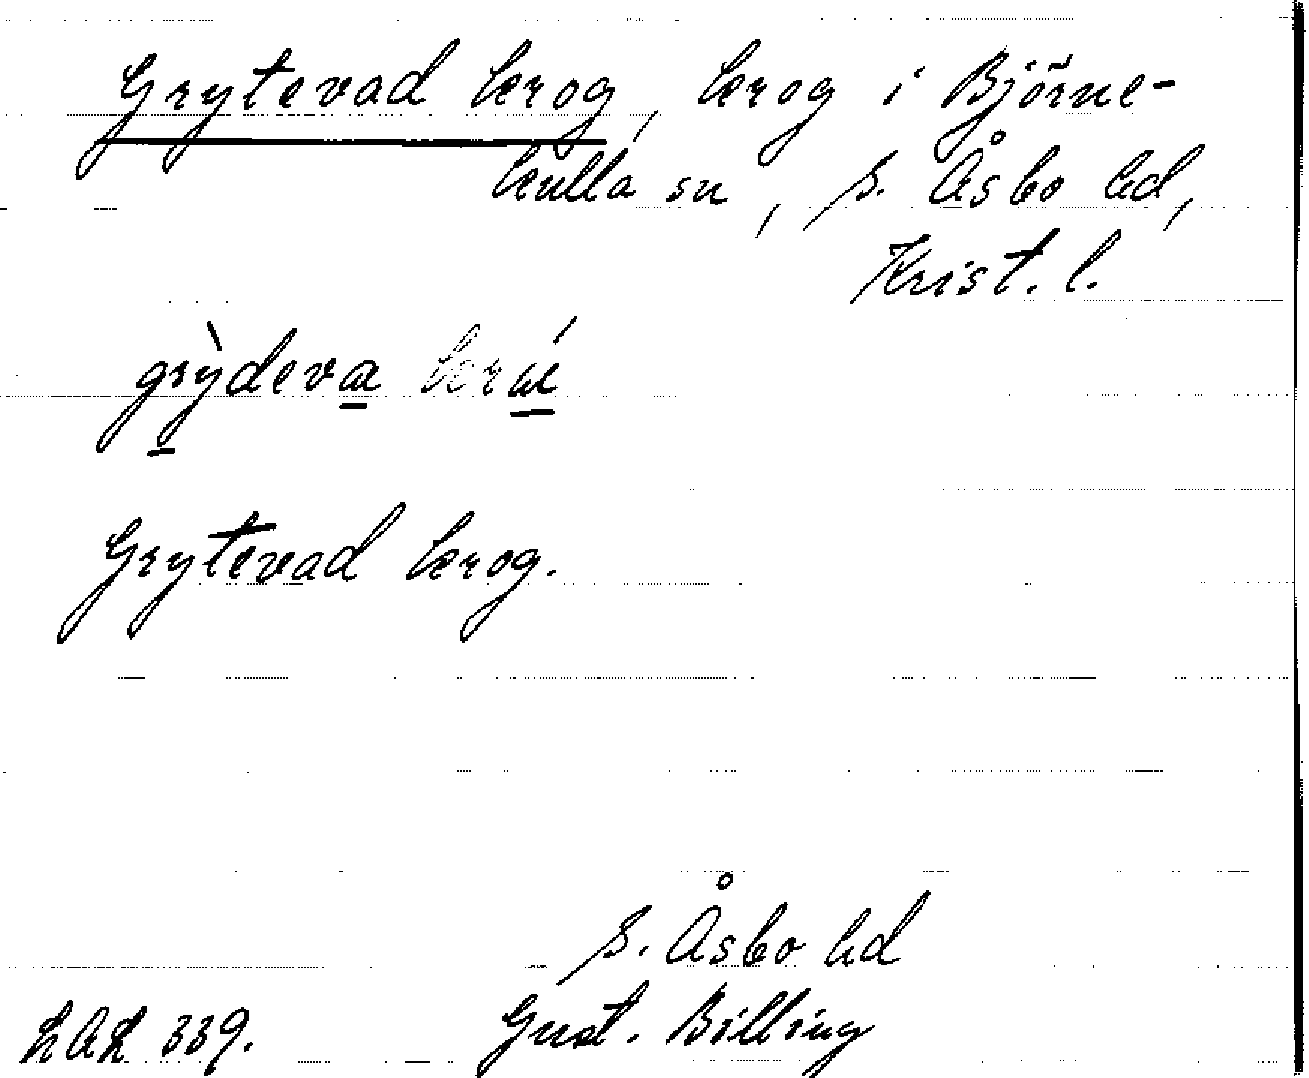 Grytevad krog, krog i Björne-
kulla sn, S. Åsbo hd,
Krist. l.
grỳdeva krǽ
Grytevad krog.
S. Åsbo hd
LAL 339. Gust. Billing